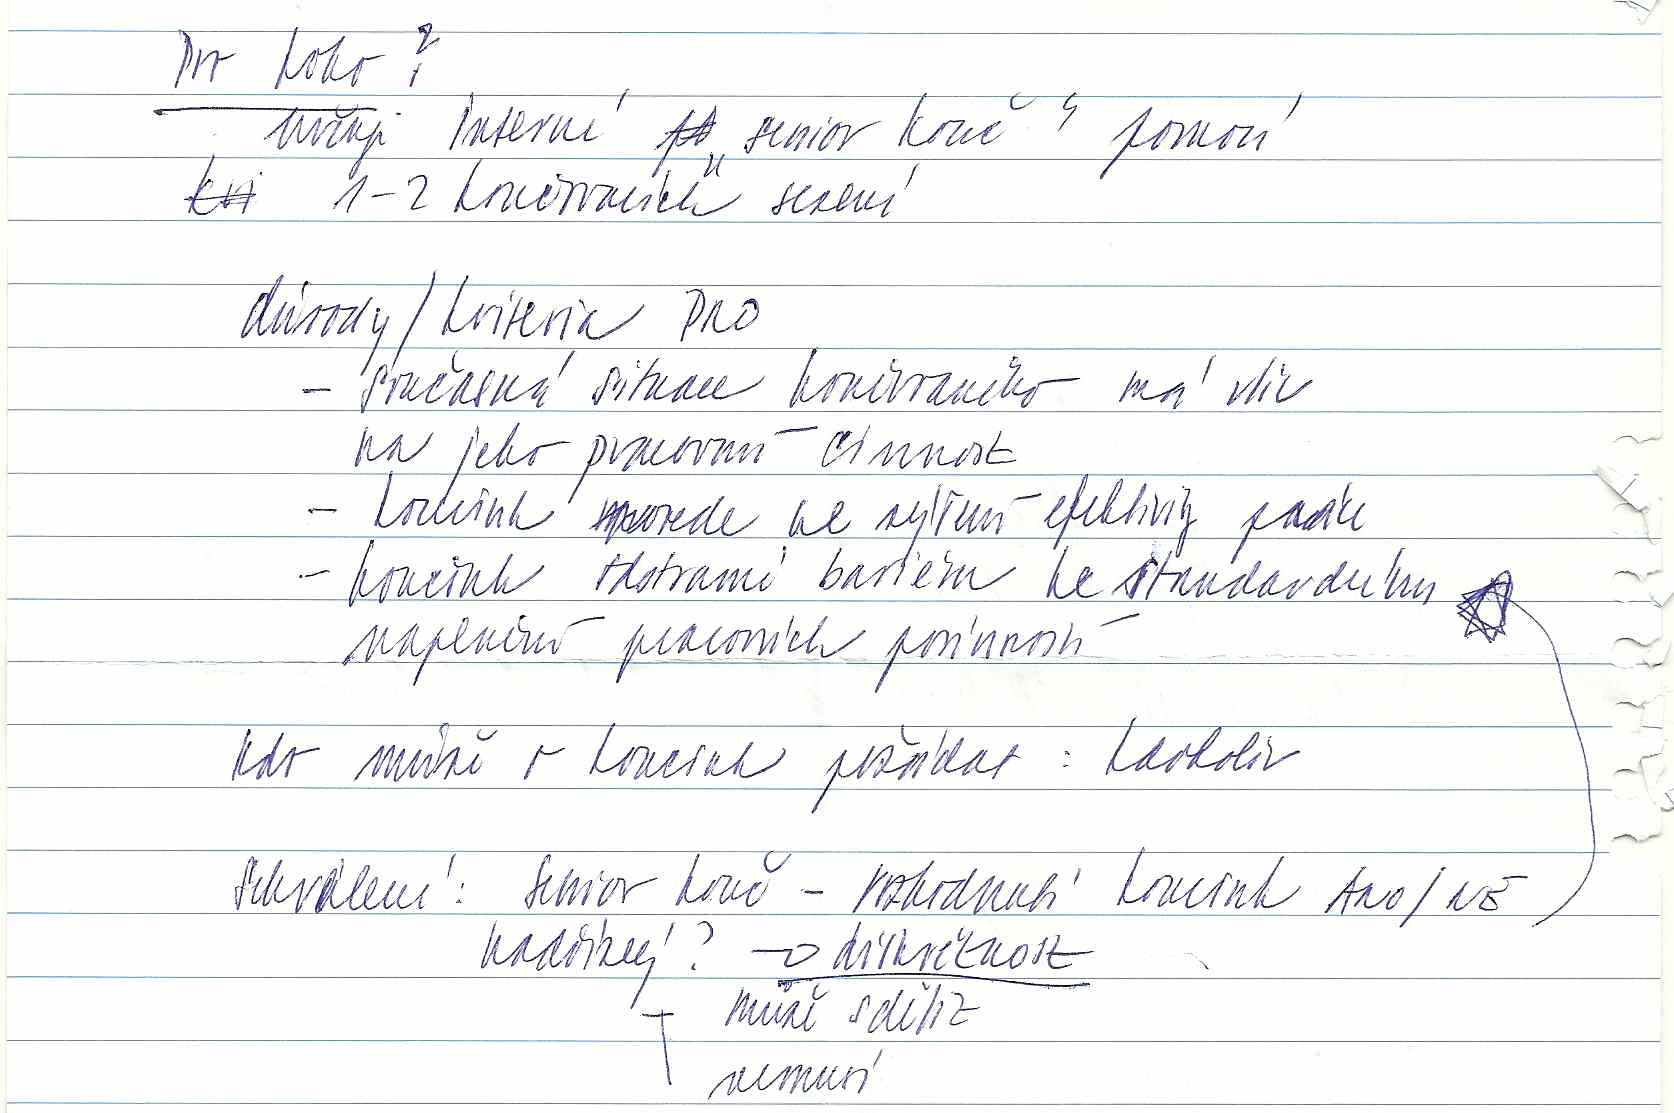 Pro koho?
určují interní „senior kouč" pomocí
1-2 koučovacích sezení
důvody/kriteria PRO
- současná situace koučovaného má vliv
na jeho pracovní činnost
- koučink povede ke zvýšení efektivity práce
- koučink odstraní bariéru ke standardnímu
naplnění pracovních povinností
Kdo může o koučink požádat : kdokoliv
Schválení: senior kouč - rozhodnutí koučink Ano/NE
nadřízený? → diskrétnost
může sdělit
nemusí